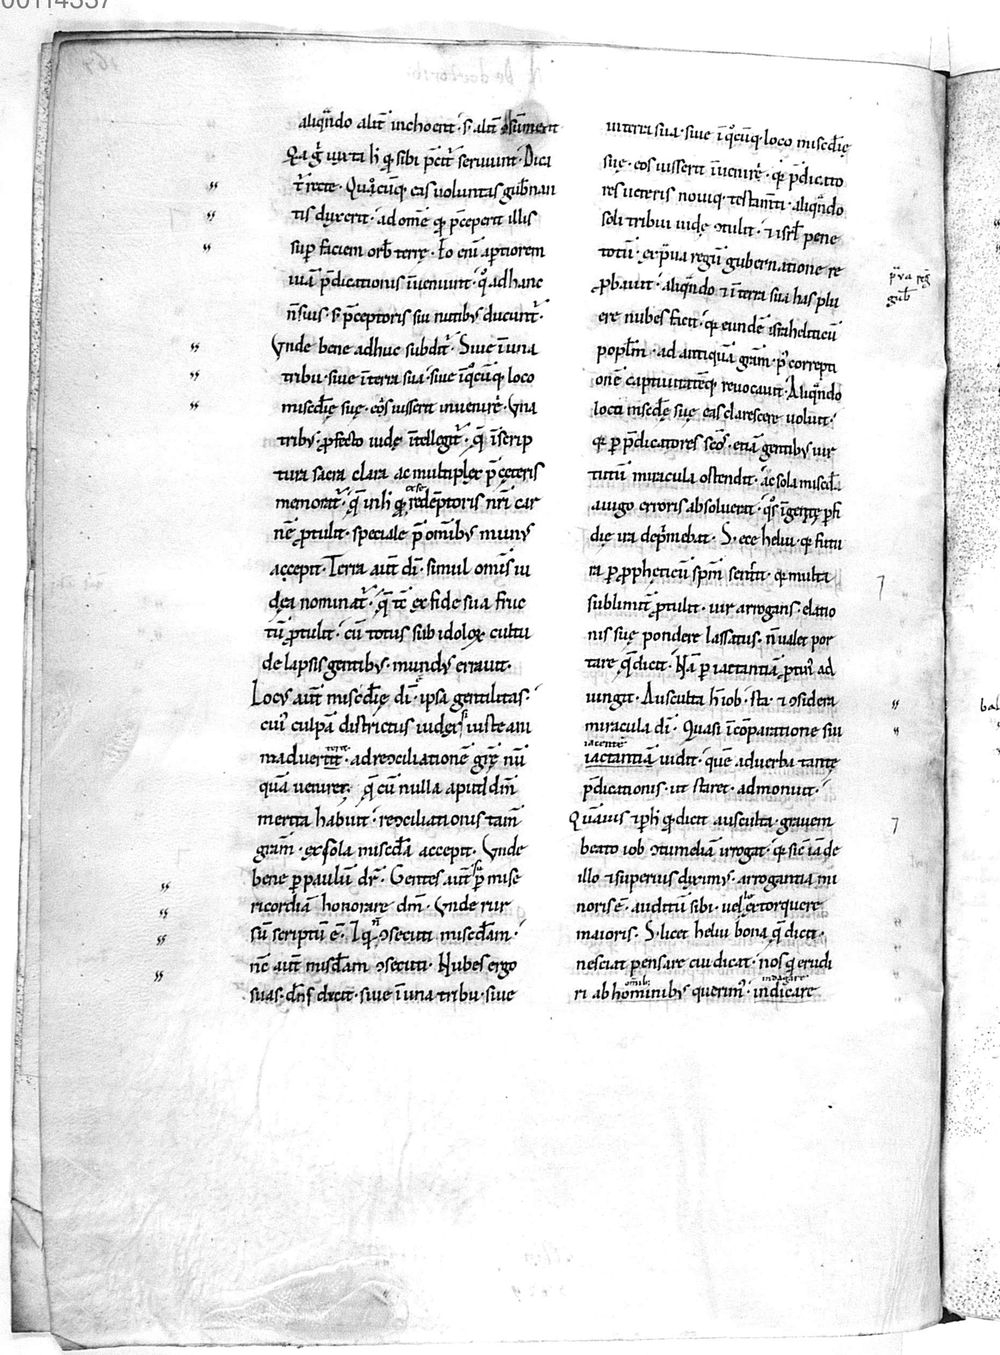 00114337
aliqñdo alit̄ inchoent · s; alit̄ ↄsūment
Qa g̊ iuxta h̄ q̄ sibi p̄cit̄ seruiunt · Dici
t̄ recte · Quo̊cūq; eas uoluntas gub̄nan
tis duxerit · ad om̄e q̄ p̄ceperit illis
sup̄ faciem orb̄ terrę · Ido eni᷑ aptiorem
uiā p̄dicationis īueniunt · q̊ ad hanc
ñ suis · s; p̄ceptoris sui nutibꝰ ducunt᷑ ·
Vnde bene adhuc subdit᷑ · Siue ī una
tribu · siue ī terra sua · siue ī q̊cūq; loco
miscd̄ię suę · eos iusserit inuenir̄e · Vna
tribꝰ ꝓfecto iudę ītellegit᷑ · q̄ ī scrip
tura sacra clara ac multiplex p̄ cęteris
memorat᷑ · q̄ in h̄ q; redēptoris nr̄i car
nē ꝓtulit · speciale p̄ omībꝰ munꝰ
accepit · Terra aut̄ dī · simul omīs iu
dęa nominat᷑ · q̄ tc̄ ex fide sua fruc
tū ꝓtulit · cū totus sub idoloꝝ cultu
de lapsis gentibꝰ · mundꝰ errauit ·
Locꝰ aut̄ miscd̄ię dī · ipsa gentilitas ·
cuiꝰ culpā districtus iudex si iuste ani
maduertit · ad recↄciliationē grę nū
quā ueniret · q̄ cū nulla apud dm̄
merita habuit · recↄciliationis tam̄
grām · ex sola miscd̄a accepit · Vnde
bene p paulū dr̄ · Gentes aut̄ sup̄ mise
ricordiā honorare dm̄ · Vnde rur
sū scriptū ē · Iq; ñ ↄsecuti miscd̄am ·
nc̄ aut̄ miscd̄am ↄsecuti · Nubes ergo
suas dn̄s ducit · siue ī una tribu · siue
in terra sua · siue ī q̊cūq; loco miscd̄ię
suę · eos iusserit īuenir̄e · q̄ p̄dicato
res ueteris nouiq; testam̄ti · aliqñdo
soli tribui iudę ↄtulit · ⁊ isrl̄ pene
totū · ex p̄ua regū gubernatione re
ꝓbauit · aliqñdo ⁊ ī terra sua has plu
ere nubes facit · q̄ eundē israheliticū
popl̄m · ad antiquā grām · p̄ correpti
onē captiuitatēq; reuocauit · Aliqñdo
loco miscd̄ę suę eas clarescere uoluit ·
q̄ p p̄dicatores sc̄os · etiā gentibꝰ uir
tutū miracula ostendit · ac sola miscd̄a
a iugo erroris absolueret · q̊s īgenitę ꝑfi
die ira dep̄mebat · S; ecce heliu · q̄ futu
ra p ꝓpheticū sp̄m sentit · q̄ multa
sublimit̄ ꝓtulit · uir arrogans · elatio
nis suę pondere lassatus · ñ ualet por
tare q̄ dicit · Nā p iactantiā ꝓtinꝰ ad
iungit · Ausculta h̄ iob · sta · ⁊ ↄsidera
miracula dī · Quasi ī cōparatione sui
iactantiā uidit · quē ad uerba tantę
p̄dicationis · ut staret · admonuit ·
Quāuis ⁊ ip̄h q̄ dicit ausculta · grauem
beato iob ↄtumeliā irrogat · q̄ sic̄ iā de
illo ⁊ superius diximꝰ · arrogantia mi
noris ē · auditū sibi · uelle extorquere
maioris · S; licet heliu bona q̄ dicit ·
nesciat pensare cui dicat · nos q̄ erudi
ri ab hominibꝰ querimꝰ · indicare
omībꝰ
indagare
iacente
p̄ua reḡ
gub̄